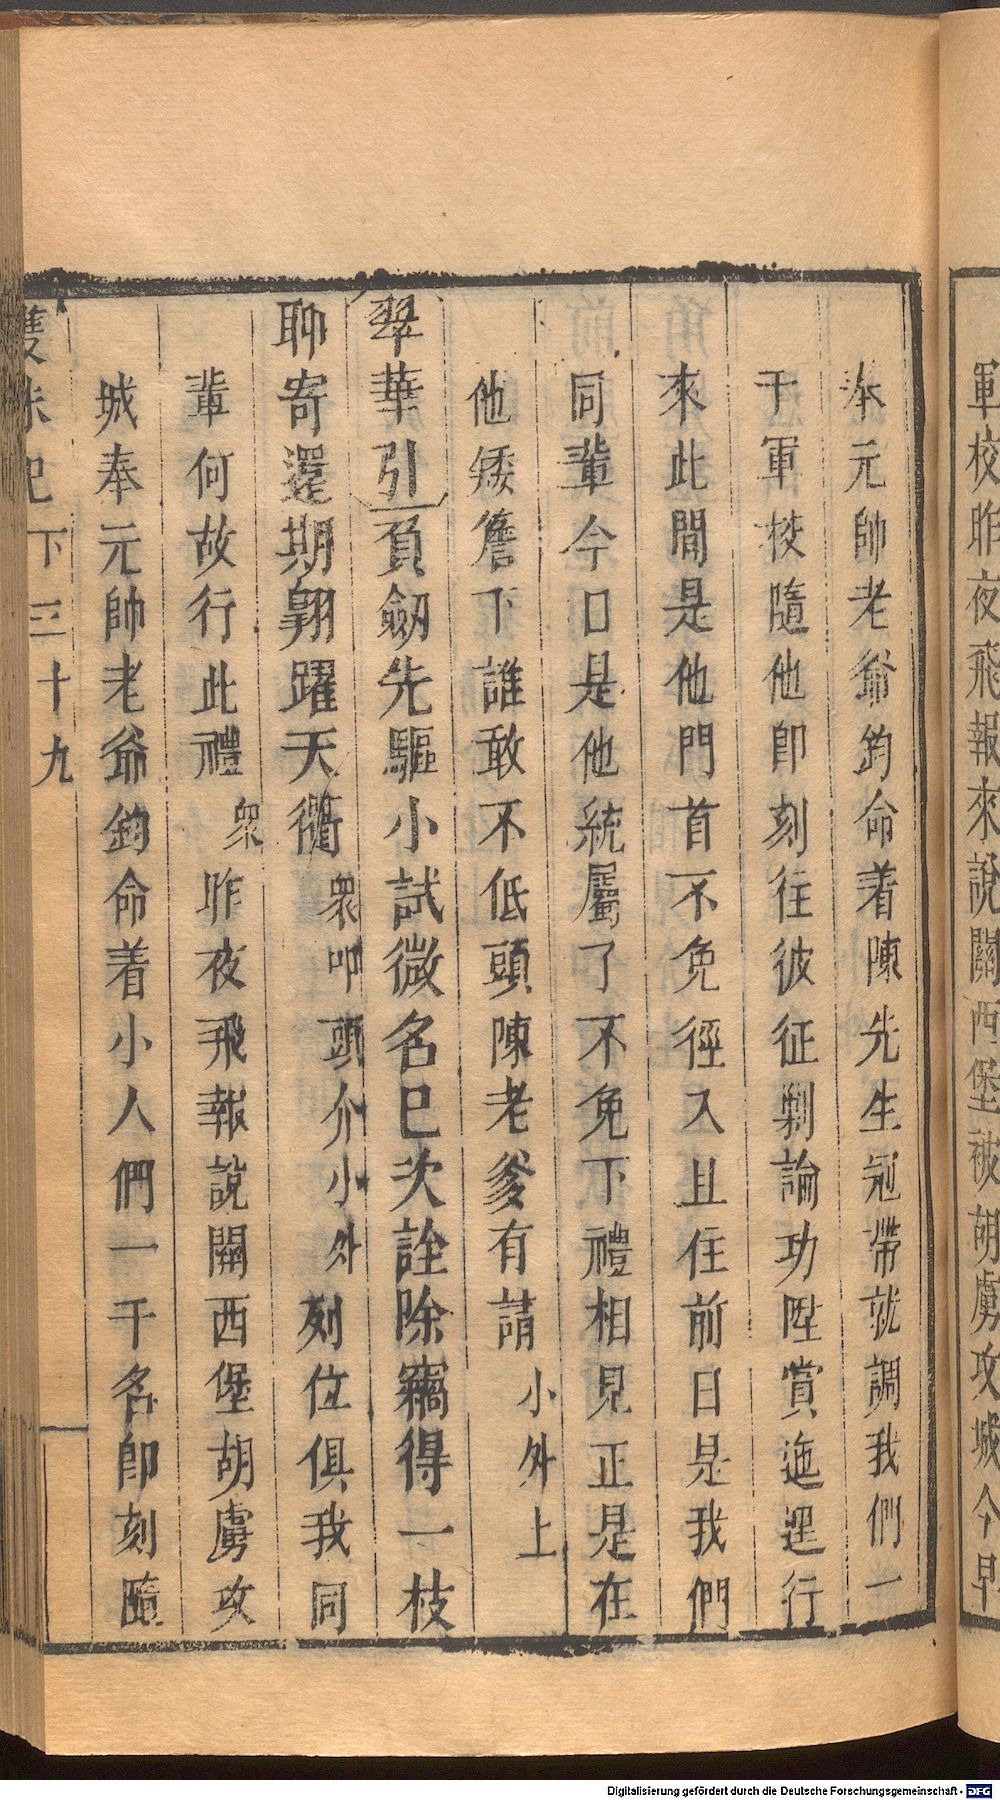 軍校昨夜飛報來說關西堡被胡虜攻城今早
奉元帥老爺鈞命着陳先生冠帶就調我們一
干軍校隨他卽刻往彼征剿論功陞賞迤逞行
來此間是他門首不免徑入且住前日是我們
同輩今日是他統屬了不免下禮相見正是在
他矮簷下誰敢不低頭陳老爹有請 小外上
翠華引 負劒先驅小試微名巳次詮除竊得一枝
聊寄還期翱躍天衢 衆叩頭介小外 列位俱我同
輩何故行此禮 衆 昨夜飛報說關西堡胡虜攻
城奉元帥老爺鈞命着小人們一干名卽刻隨
雙珠记 下 三十九
Digitalisierung gefördert durch die Deutsche Forschungsgemeinschaft - DFG